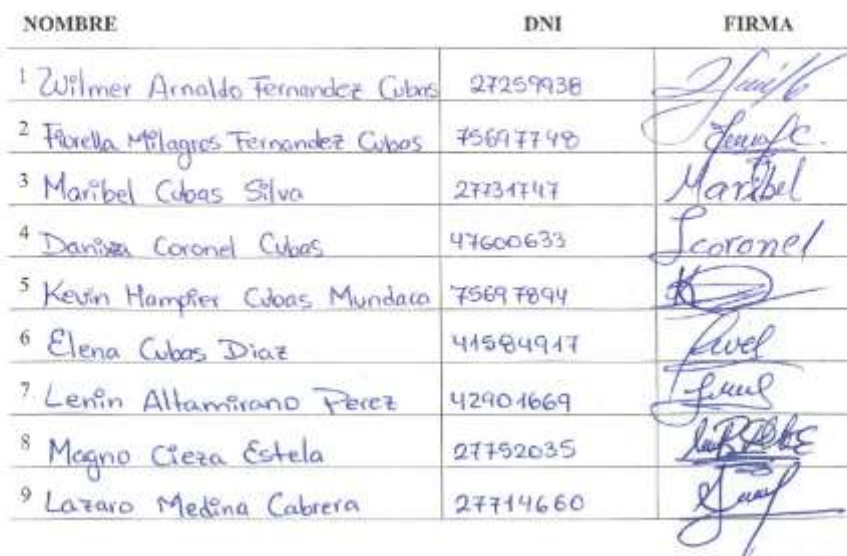 NOMBRE DNI FIRMA
1 Wilmer Arnaldo Fernandez Cubas 27259938
2 Fiorella Milagros Fernandez Cubas 75697748
3 Maribel Cubas Silva 27731747 Maribel
4 Danixa Coronel Cubas 47600633 Scoronel
5 Kevin Hampier Cubas Mundaca 75697894
6 Elena Cubas Diaz 41584917
7 Lenin Altamirano Perez 42901669
8 Magno Cieza Estela 27752035
9 Lazaro Medina Cabrera 27714660